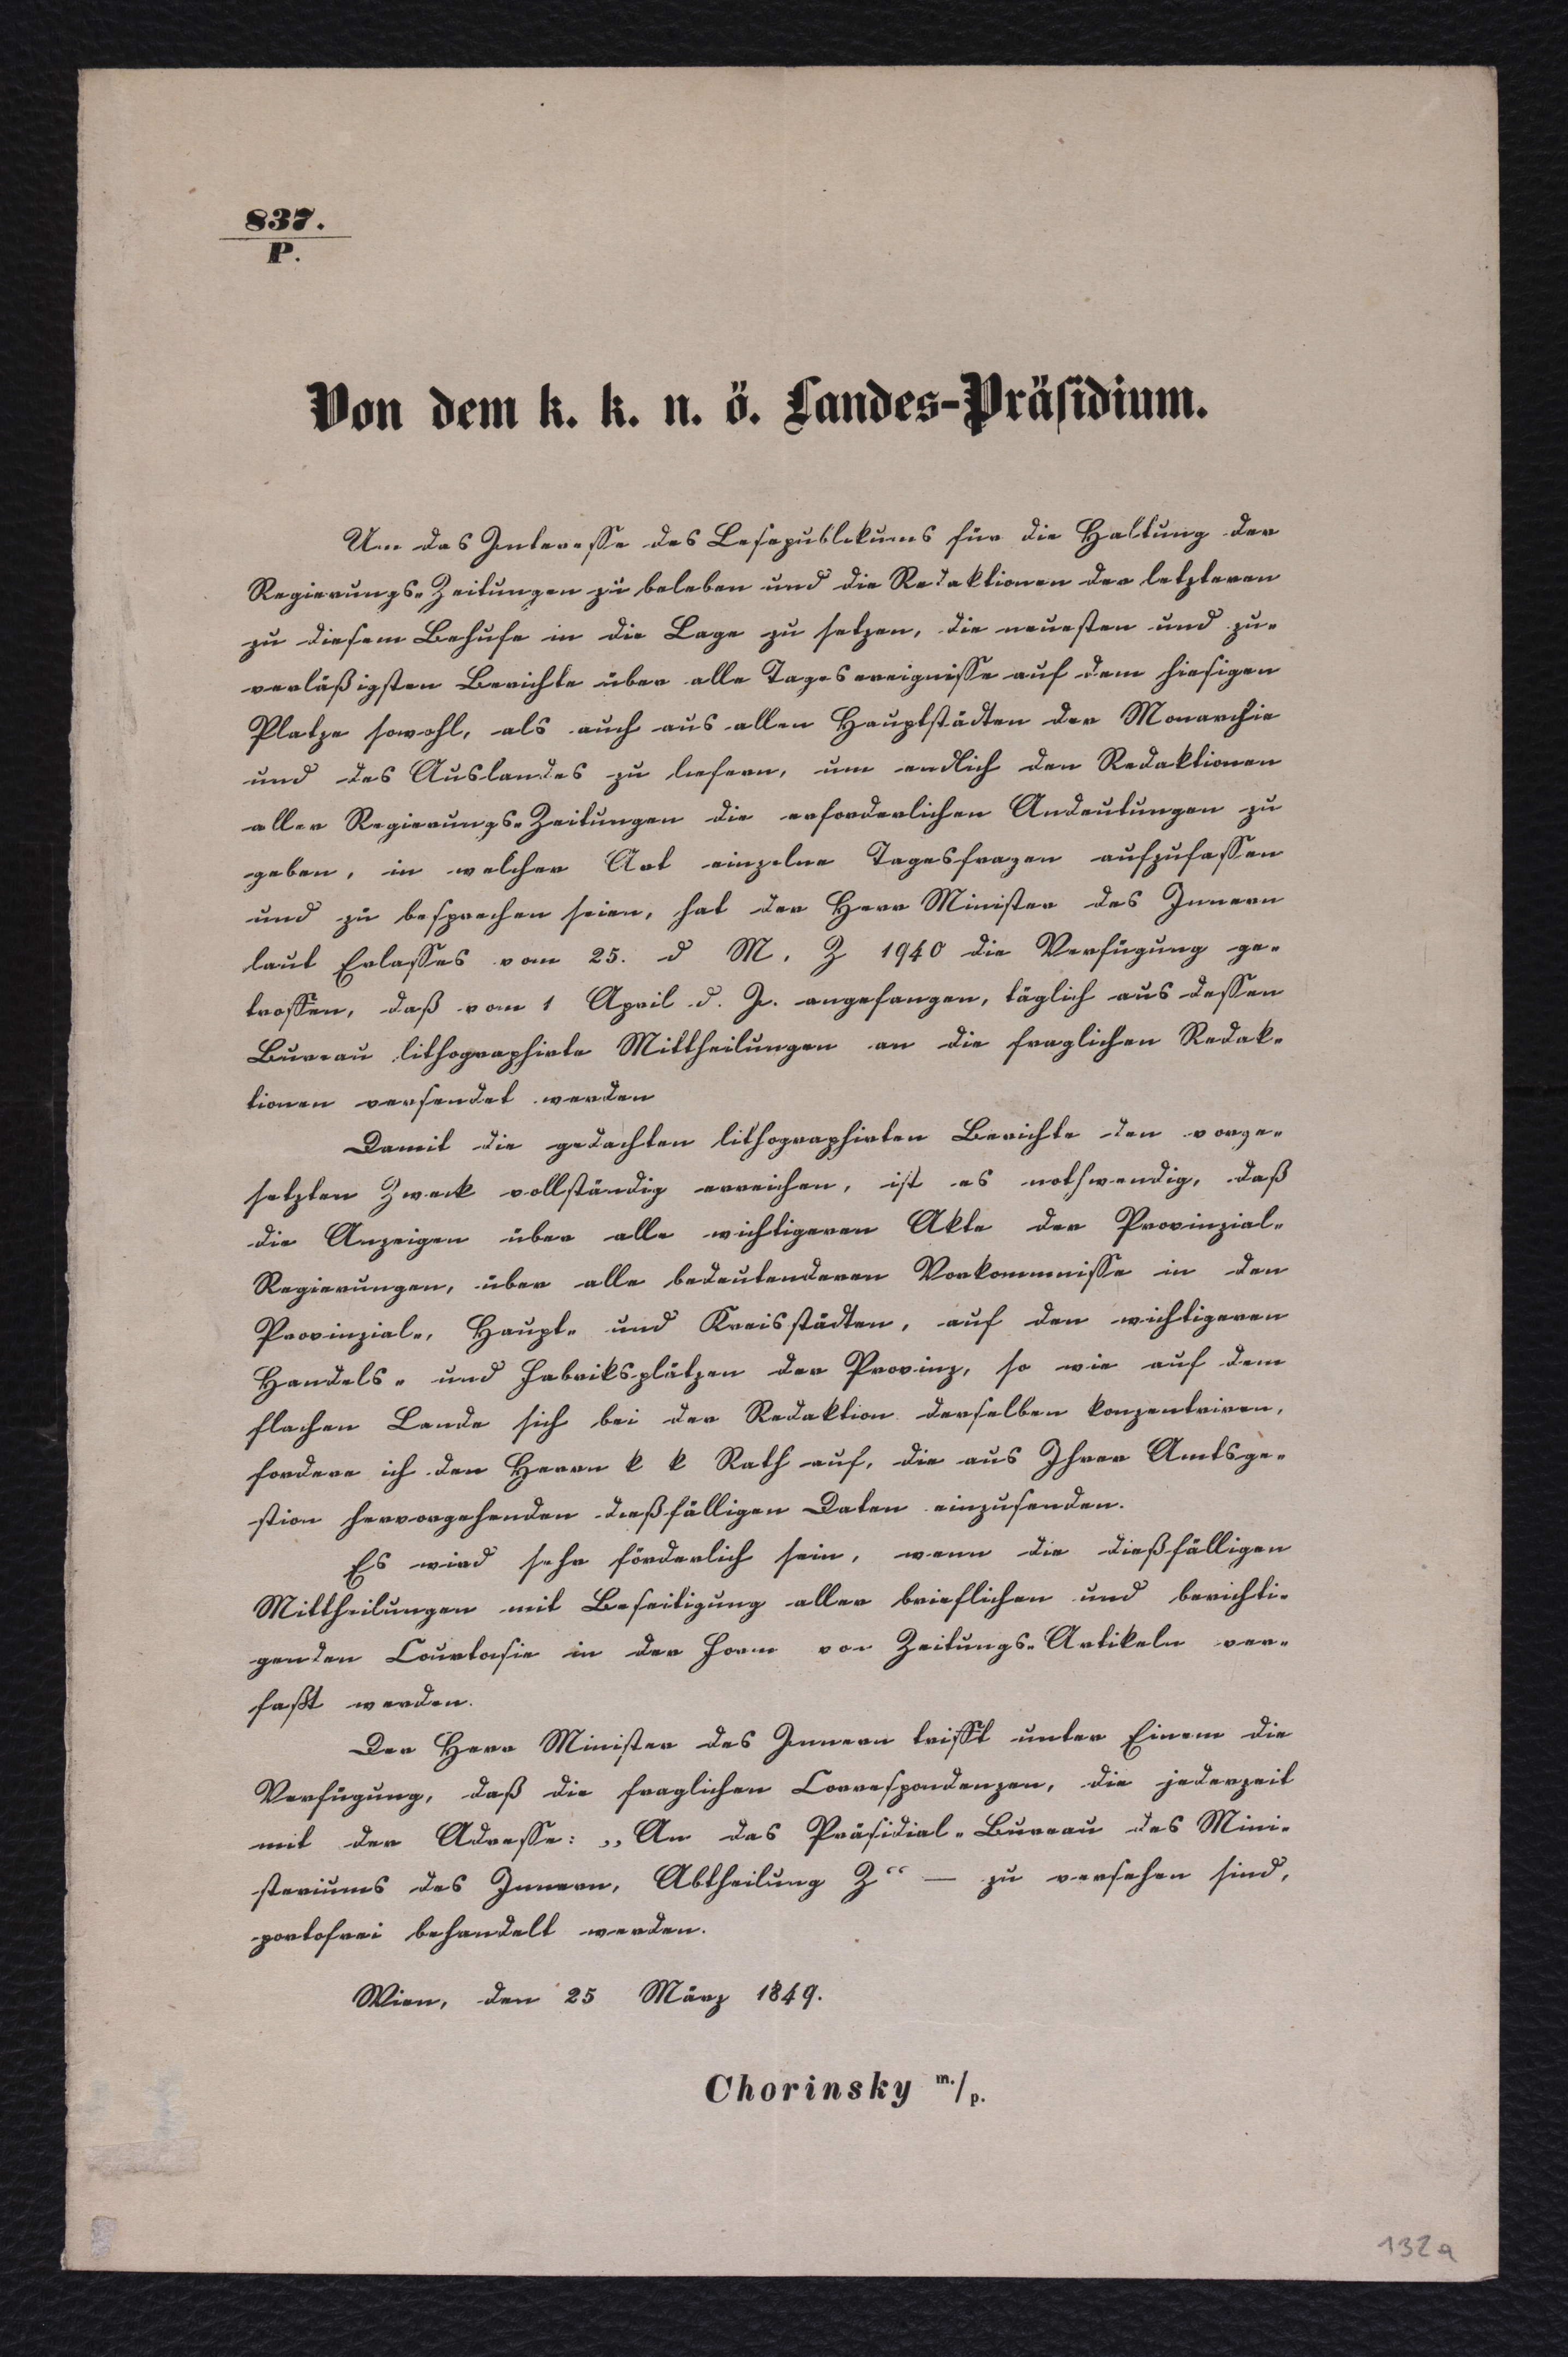 837.
P.
Von dem k. k. n. ö. Landes-Präsidium.
Um das Interesse des Lesepublikums für die Haltung der
Regierungs-Zeitungen zu beleben und die Redaktionen der letzteren
zu diesem Behufe in die Lage zu setzen, die neuesten und zu-
verläßigsten Berichte über alle Tagesereignisse auf dem hiesigen
Platze sowohl, als auch aus allen Hauptstädten der Monarchie
und des Auslandes zu liefern, um endlich den Redaktionen
aller Regierungs-Zeitungen die erforderlichen Andeutungen zu
geben, in welcher Art einzelne Tagesfragen aufzufassen
und zu besprechen seien, hat der Herr Minister des Innern
laut Erlasses vom 25. d M. Z 1940 die Verfügung ge-
troffen, daß vom 1 April d. J. angefangen, täglich aus dessen
Bureau lithographirte Mittheilungen an die fraglichen Redak-
tionen versendet werden
Damit die gedachten lithographirten Berichte den vorge-
setzten Zweck vollständig erreichen, ist es nothwendig, daß
die Anzeigen über alle wichtigeren Akte der Provinzial-
Regierungen, über alle bedeutenderen Vorkommnisse in den
Provinzial-, Haupt- und Kreisstädten, auf den wichtigeren
Handels- und Fabriksplätzen der Provinz, so wie auf dem
flachen Lande sich bei der Redaktion derselben konzentriren,
fordere ich den Herrn k k Rath auf, die aus Ihrer Amtsge-
stion hervorgehenden dießfälligen Daten einzusenden.
Es wird sehr förderlich sein, wenn die dießfälligen
Mittheilungen mit Beseitigung aller brieflichen und berichti-
genden Courtoisie in der Form von Zeitungs-Artikeln ver-
faßt werden.
Der Herr Minister des Innern trifft unter Einem die
Verfügung, daß die fraglichen Correspondenzen, die jederzeit
mit der Adresse: „An das Präsidial-Bureau des Mini-
steriums des Innern, Abtheilung Z“ — zu versehen sind,
portofrei behandelt werden.
Wien, den 25 März 1849.
Chorinsky m./p.
132a